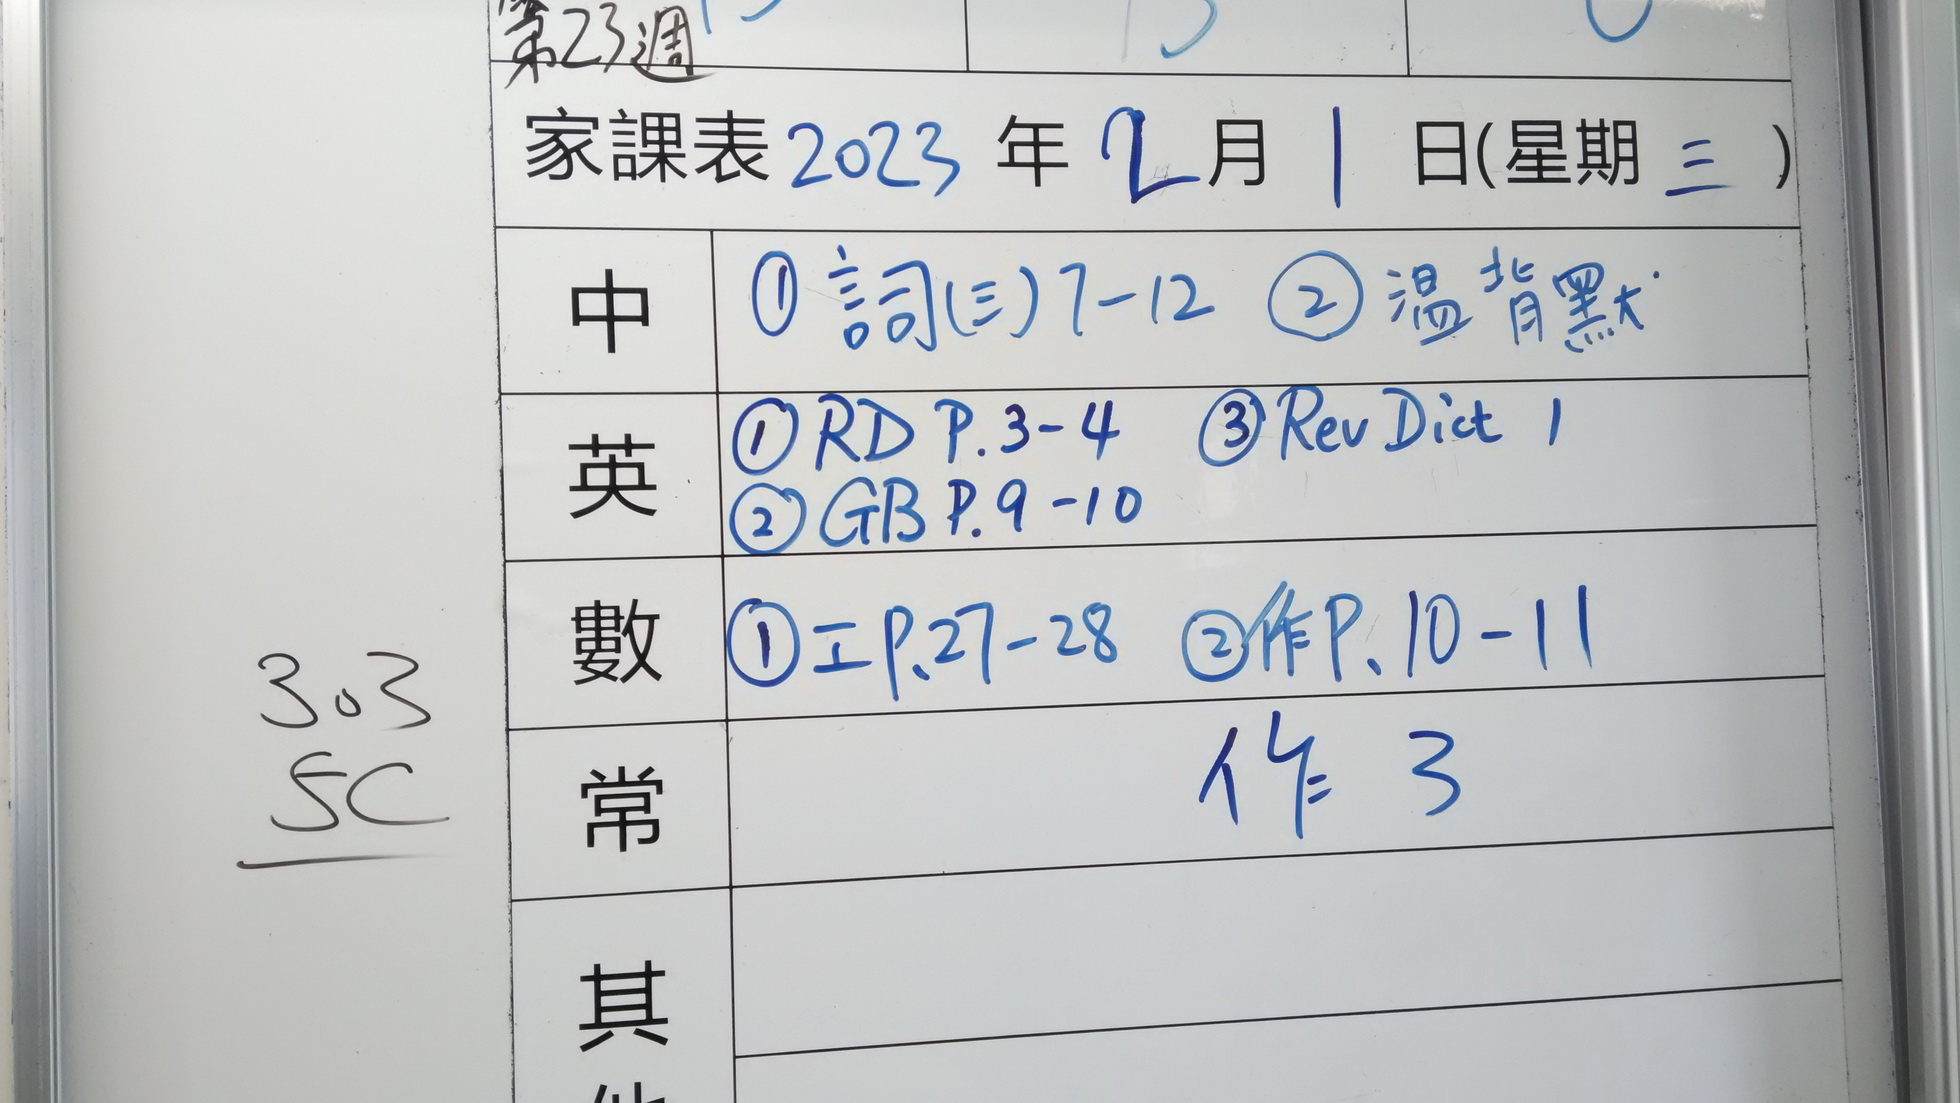 第23週
家課表 2023 年 2 月 1 日(星期 三 )
中 ① 詞(三) 7-12 ② 溫背默
英 ① RD P.3-4 ③ Rev Dict 1
② GB P.9-10
數 ① 工 P.27-28 ② 作 P.10-11
303
5C
常 作 3
其
他